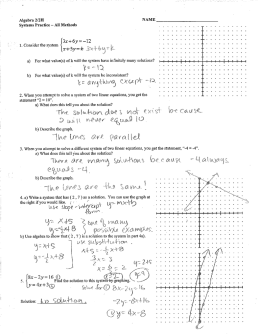 Algebra 2/2H
Systems Practice – All Methods
NAME
1. Consider the system { 3x+6y=-12
x+
a) For what value(s) of k will the system have infinitely many solutions?
k=-12
b) For what value(s) of k will the system be inconsistent?
k= anything except -12
2. When you attempt to solve a system of two linear equations, you get the
statement "2 = 10".
a) What does this tell you about the solution?
The solution does not exist because
2 will never equal 10
b) Describe the graph.
The lines are parallel
3. When you attempt to solve a different system of two linear equations, you get the statement, "-4 = -4".
a) What does this tell you about the solution?
There are many solutions because -4 always
equals -4
b) Describe the graph.
The lines are the same!
4. a) Write a system that has ( 2 , 7 ) as a solution. You can use the graph at
the right if you would like.
use slope-intercept
y = x+5
possible examples
b) Use algebra to show that ( 2 , 7 ) is a solution to the system in part (a).
y = x+5
use substitution
5. { 8x – 2y = 16
y = 4x +
Find the solution to this system by graphing.
Solution: no solution
-2y = -8x+16
y = 4x-8